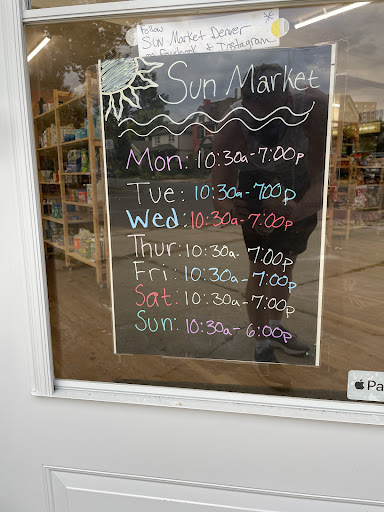 Follow
Sun Market Denver
on Facebook & Instagram
Sun Market
Mon: 10:30a-7:00p
Tue: 10:30a-7:00p
Wed: 10:30a-7:00p
Thur: 10:30a-7:00p
Fri: 10:30a-7:00p
Sat: 10:30a-7:00p
Sun: 10:30a-6:00p
Pa